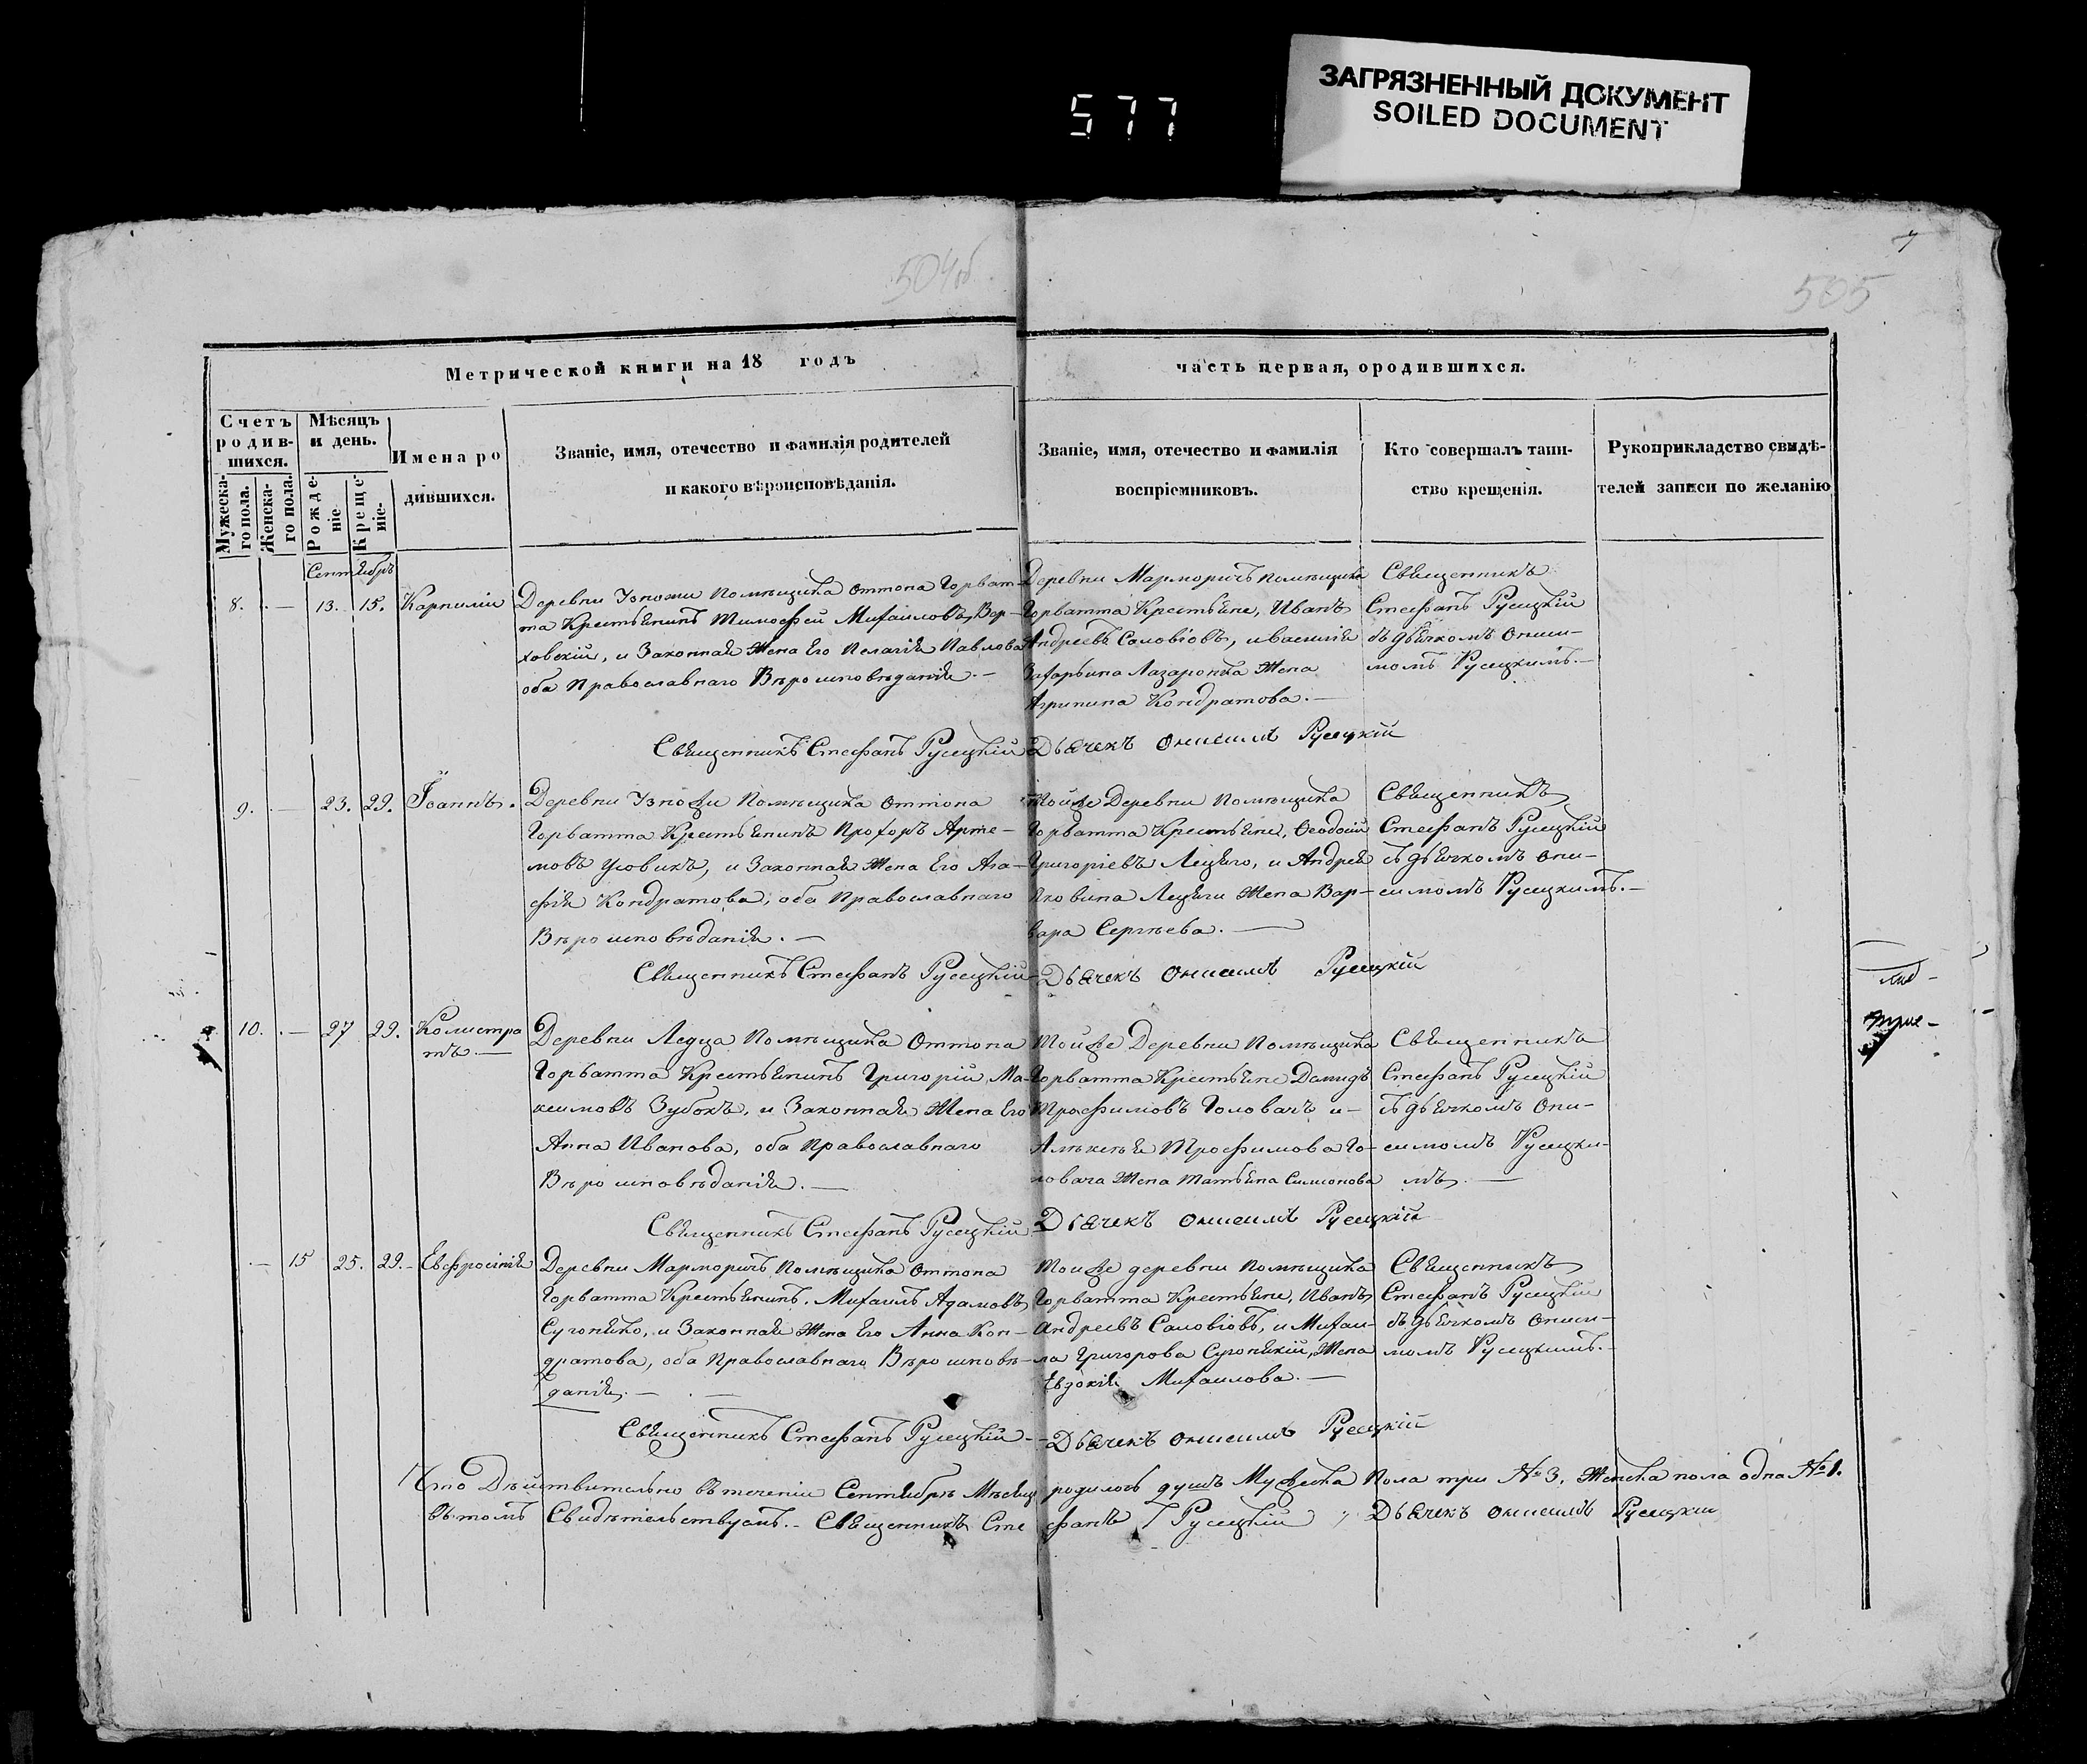 577
ЗАГРЯЗНЕННЫЙ ДОКУМЕНТ
SOILED DOCUMENT
7
504об
505
Метрической книги на 18 годъ
часть первая, ородившихся.
Счетъ родив-шихся.
Мужеска-го пола.
Женска-го пола.
Мѣсяцъ и день.
Рожде-ніе.
Креще-ніе.
Имена ро
дившихся.
Званіе, имя, отечество и фамилія родителей
и какого вѣроисповѣданія.
Званіе, имя, отечество и фамилія
воспріемниковъ.
Кто совершалъ таин-
ство крещенія.
Рукоприкладство свидѣ-
телей записи по желанію
Сентябръ
8. — 13. 15. Карпилій
Деревни Узножи Помѣщика Оттона Горват-
та Крестьянинъ Тимофей Михаиловъ Вер-
ховскій, и Законная Жена Его Пелагія Павлова
оба Православнаго Вѣроисповѣданія. —
Деревни Марморичъ помѣщика
Горватта Крестьяне, Иванъ
Андреевъ Саловіовъ, и Василія
Захарьина Лазаронка Жена
Агрипина Кондратова. —
Священникъ
Стефанъ Русецкій
съ дьячкомъ Ониси-
момъ Русецкимъ. —
Священникъ Стефанъ Русецкій Дьячекъ Онисимъ Русецкій
9. — 23. 29. Іоаннъ.
Деревни Узножи Помѣщика Оттона
Горватта Крестьянинъ Прохоръ Арте-
мовъ Усовикъ, и Законная Жена Его Ага-
фія Кондратова, оба Православнаго
Вѣроисповѣданія. —
Тойже Деревни Помѣщика
Горватта Крестьяне, Феодосій
Григоріевъ Лецяго, и Андрея
Яковина Лецяги Жена Вар-
вара Сергѣева. —
Священникъ
Стефанъ Русецкій
съ дьячкомъ Они-
симомъ Русецкимъ. —
Священникъ Стефанъ Русецкій Дьячекъ Онисимъ Русецкій
10. — 27 29. Колистра
тъ. —
Деревни Ледца Помѣщика Оттона
Горватта Крестьянинъ Григорій Ма-
ксимовъ Зубокъ, и Законная Жена Его
Анна Иванова, оба Православнаго
Вѣроисповѣданія. —
Тойже Деревни Помѣщика
Горватта Крестьяне Давидъ
Трофимовъ Головачъ и —
Алѣксѣя Трофимова Го-
ловача Жена Татьяна Симионова
Священникъ
Стефанъ Русецкій
съ дьячкомъ Они-
симомъ Русецки-
мъ. —
Священникъ Стефанъ Русецкій Дьячекъ Онисимъ Русецкій
— 15 25. 29. Евфросинія
Деревни Марморичъ Помѣщика Оттона
Горватта Крестьянинъ, Михаилъ Адамовъ
Сугоняко, и Законная Жена Его Анна Кон-
дратова, оба Православнаго Вѣроисповѣ-
данія. —
Тойже деревни Помѣщика
Горватта Крестьяне, Иванъ
Андреевъ Саловіовъ, и Михаи-
ла Григорова Сугонякій, Жена
Евдокія Михаилова. —
Священникъ
Стефанъ Русецкій
съ дьячкомъ Ониси-
момъ Русецкимъ. —
Священникъ Стефанъ Русецкій — Дьячекъ Онисимъ Русецкій
Что Дѣйствительно въ теченіи Сентябрѣ Мѣсяцѣ родилось душъ Мужеска Пола три № 3. Женска пола одна № 1.
въ томъ Свидѣтельствуемъ. — Священникъ Стефанъ Русецкій Дьячекъ Онисимъ Русецкій